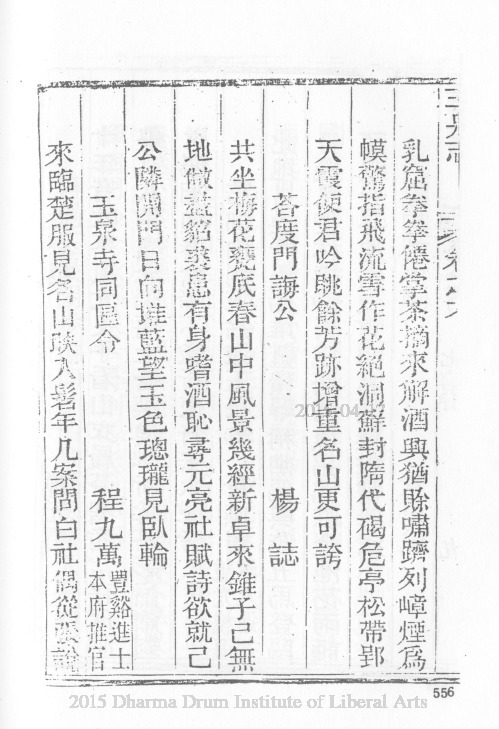 玉泉志 卷之六
乳窟拳拳倦掌茶摘來解酒興猶賒嘯躋列嶂煙爲
幙驚指飛流雪作花絕洞蘚封隋代碣危亭松帶郢
天霞使君吟眺餘芳跡增重名山更可誇
荅度門誨公 楊誌
共坐梅花甕底春山中風景幾經新卓來錐子已無
地倣蓋貂裘患有身嗜酒恥尋元亮社賦詩欲就己
公隣閉門日向堆藍望玉色璁瓏見臥輪
玉泉寺同區令 程九萬 豐谿進士本府推官
來臨楚服見名山映入髫年几案間白社偶從張
556
2015 Dharma Drum Institute of Liberal Arts